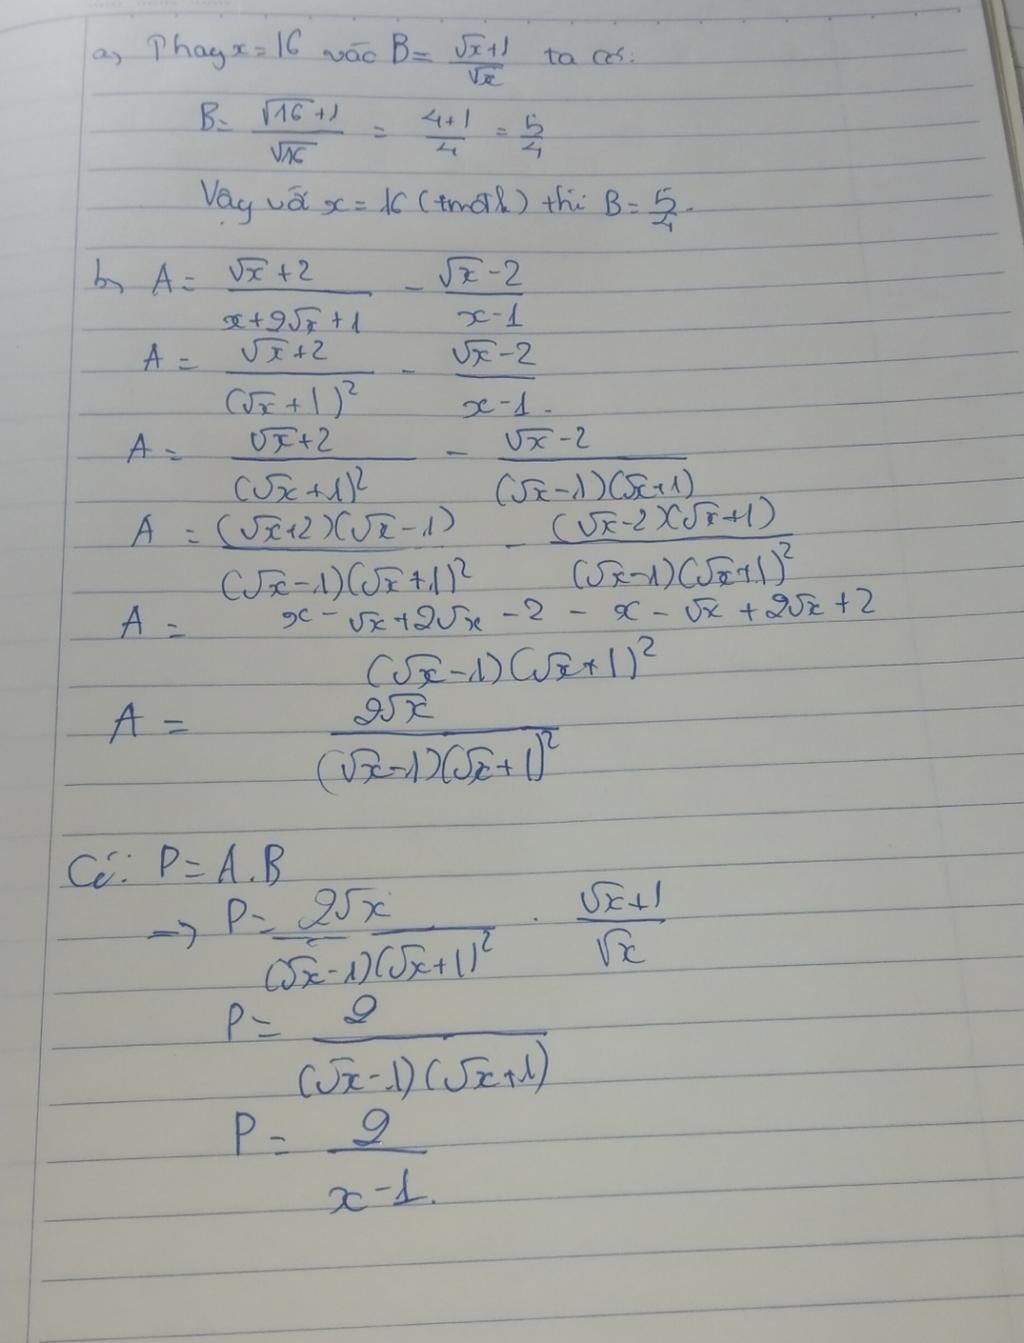 a, Thay x = 16 vào B = (√x+1)/√x ta có:
B = (√16+1)/√16 = (4+1)/4 = 5/4
Vậy với x = 16 (tmđk) thì B = 5/4.
b, A = (√x+2)/(x+2√x+1) - (√x-2)/(x-1)
A = (√x+2)/(√x+1)² - (√x-2)/(x-1).
A = (√x+2)/(√x+1)² - (√x-2)/((√x-1)(√x+1))
A = ((√x+2)(√x-1))/((√x-1)(√x+1)²) - ((√x-2)(√x+1))/((√x-1)(√x+1)²)
A = (x-√x+2√x-2-x-√x+2√x+2)/((√x-1)(√x+1)²)
A = 2√x/((√x-1)(√x+1)²)
Có: P = A.B
→ P = 2√x/((√x-1)(√x+1)²) . (√x+1)/√x
P = 2/((√x-1)(√x+1))
P = 2/(x-1).